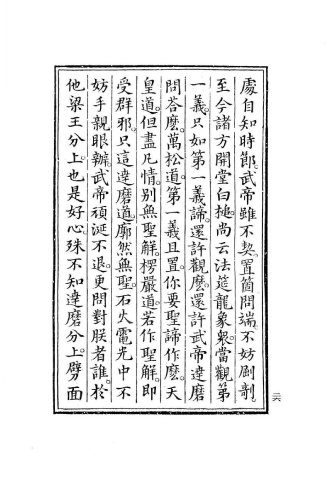 處自知時節。武帝雖不契。置箇問端。不妨
至今諸方開堂白槌。尚云法筵龍象衆。當觀第
一義。只如第一義諦。還許觀麼。還許武帝達磨
問荅麼。萬松道。第一義且置。你要聖諦作麼。天
皇道。但盡凡情。別無聖解。楞嚴道。若作聖解。即
受群邪。只這達磨道。廓然無聖。石火電光中不
妨手親眼辦。武帝頑涎不退。更問對朕者誰。於
他梁王分上。也是好心。殊不知達磨分上。劈面